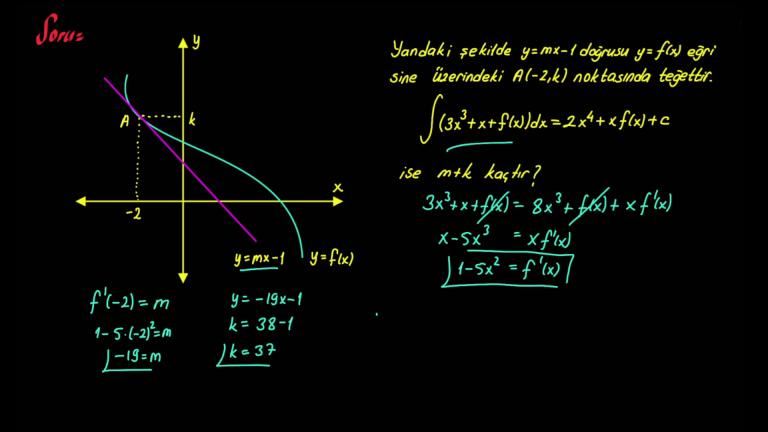 Soru=
y
A
k
x
-2
y=mx-1
y=f(x)
Yandaki şekilde y=mx-1 doğrusu y=f(x) eğri
sine üzerindeki A(-2,k) noktasında teğettir.
∫(3x³+x+f(x))dx=2x⁴+xf(x)+c
ise m+k kaçtır?
3x³+x+f(x)=8x³+f(x)+xf'(x)
x-5x³=xf'(x)
1-5x²=f'(x)
f'(-2)=m
1-5·(-2)²=m
-19=m
y=-19x-1
k=38-1
k=37